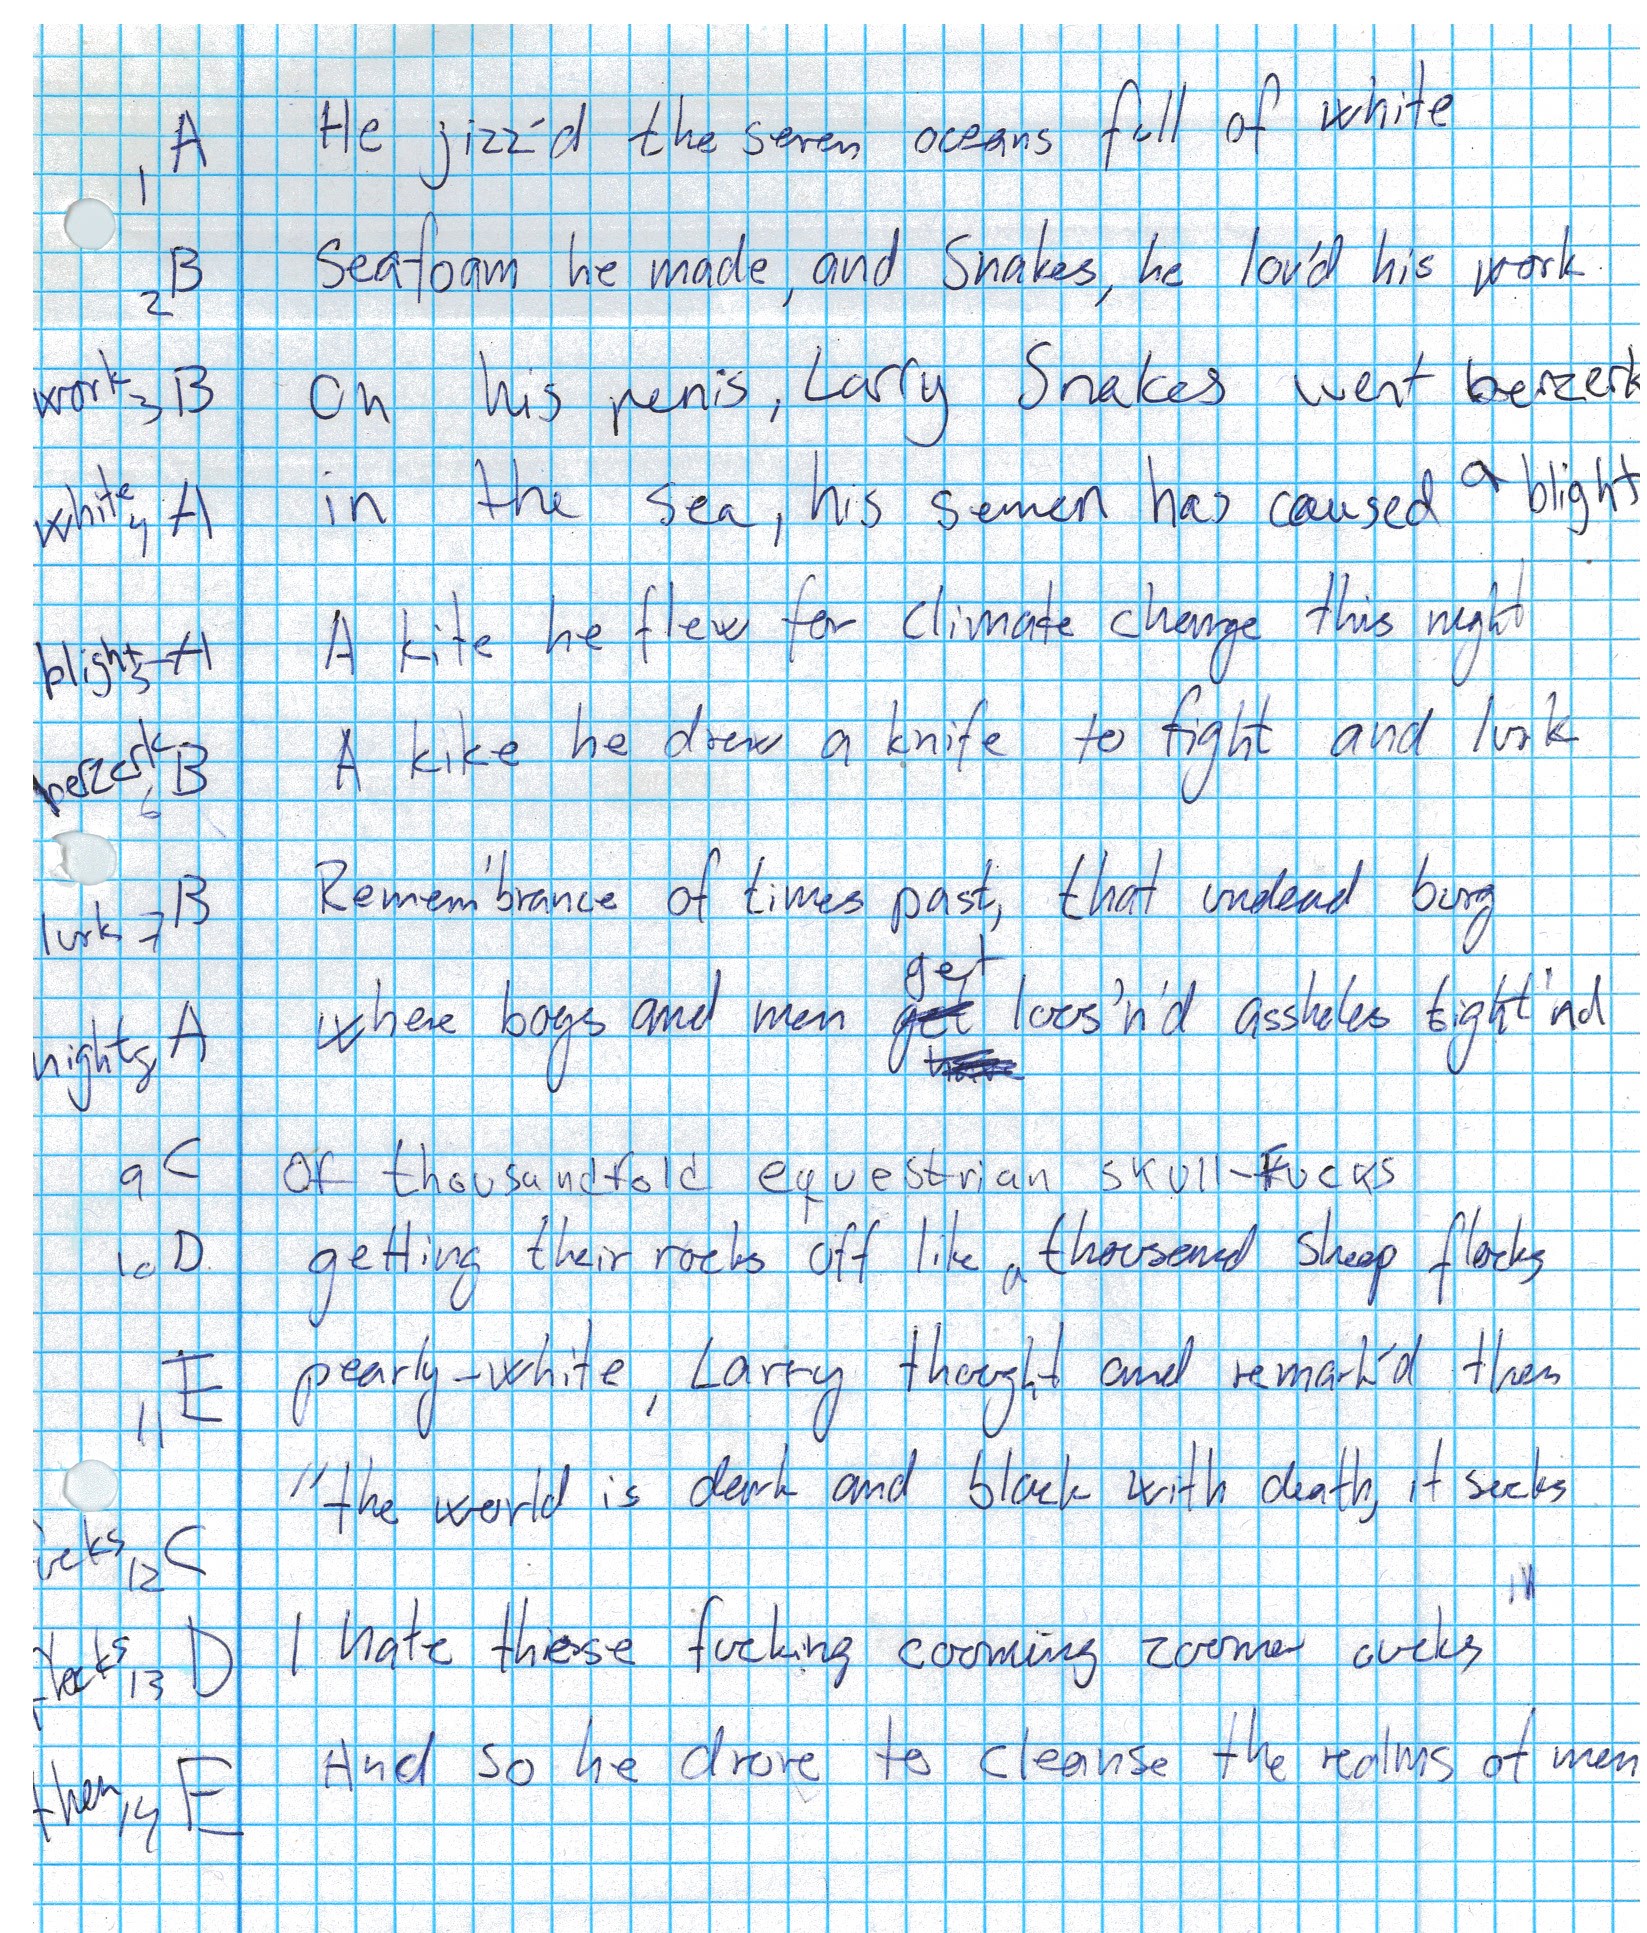 1 A He jizz'd the seven oceans full of white
2 B Seafoam he made, and Snakes, he lov'd his work
work 3 B On his penis, Larry Snakes went berzerk
white 4 A in the sea, his semen has caused a blight
blight 5 A A kite he flew for climate change this night
berzerk 6 B A kike he drew a knife to fight and lurk
lurk 7 B Remem'brance of times past, that undead burg
get
night 8 A where boys and men get loos'n'd assholes tight'nd
9 C Of thousandfold equestrian skull-Fucks
10 D getting their rocks off like a thousand sheep flocks
11 E pearly-white, Larry thought and remark'd then
"the world is dark and black with death, it sucks
ucks 12 C
flocks 13 D I hate these fucking cooming zoomer cucks"
then 14 E And so he drove to cleanse the realms of men